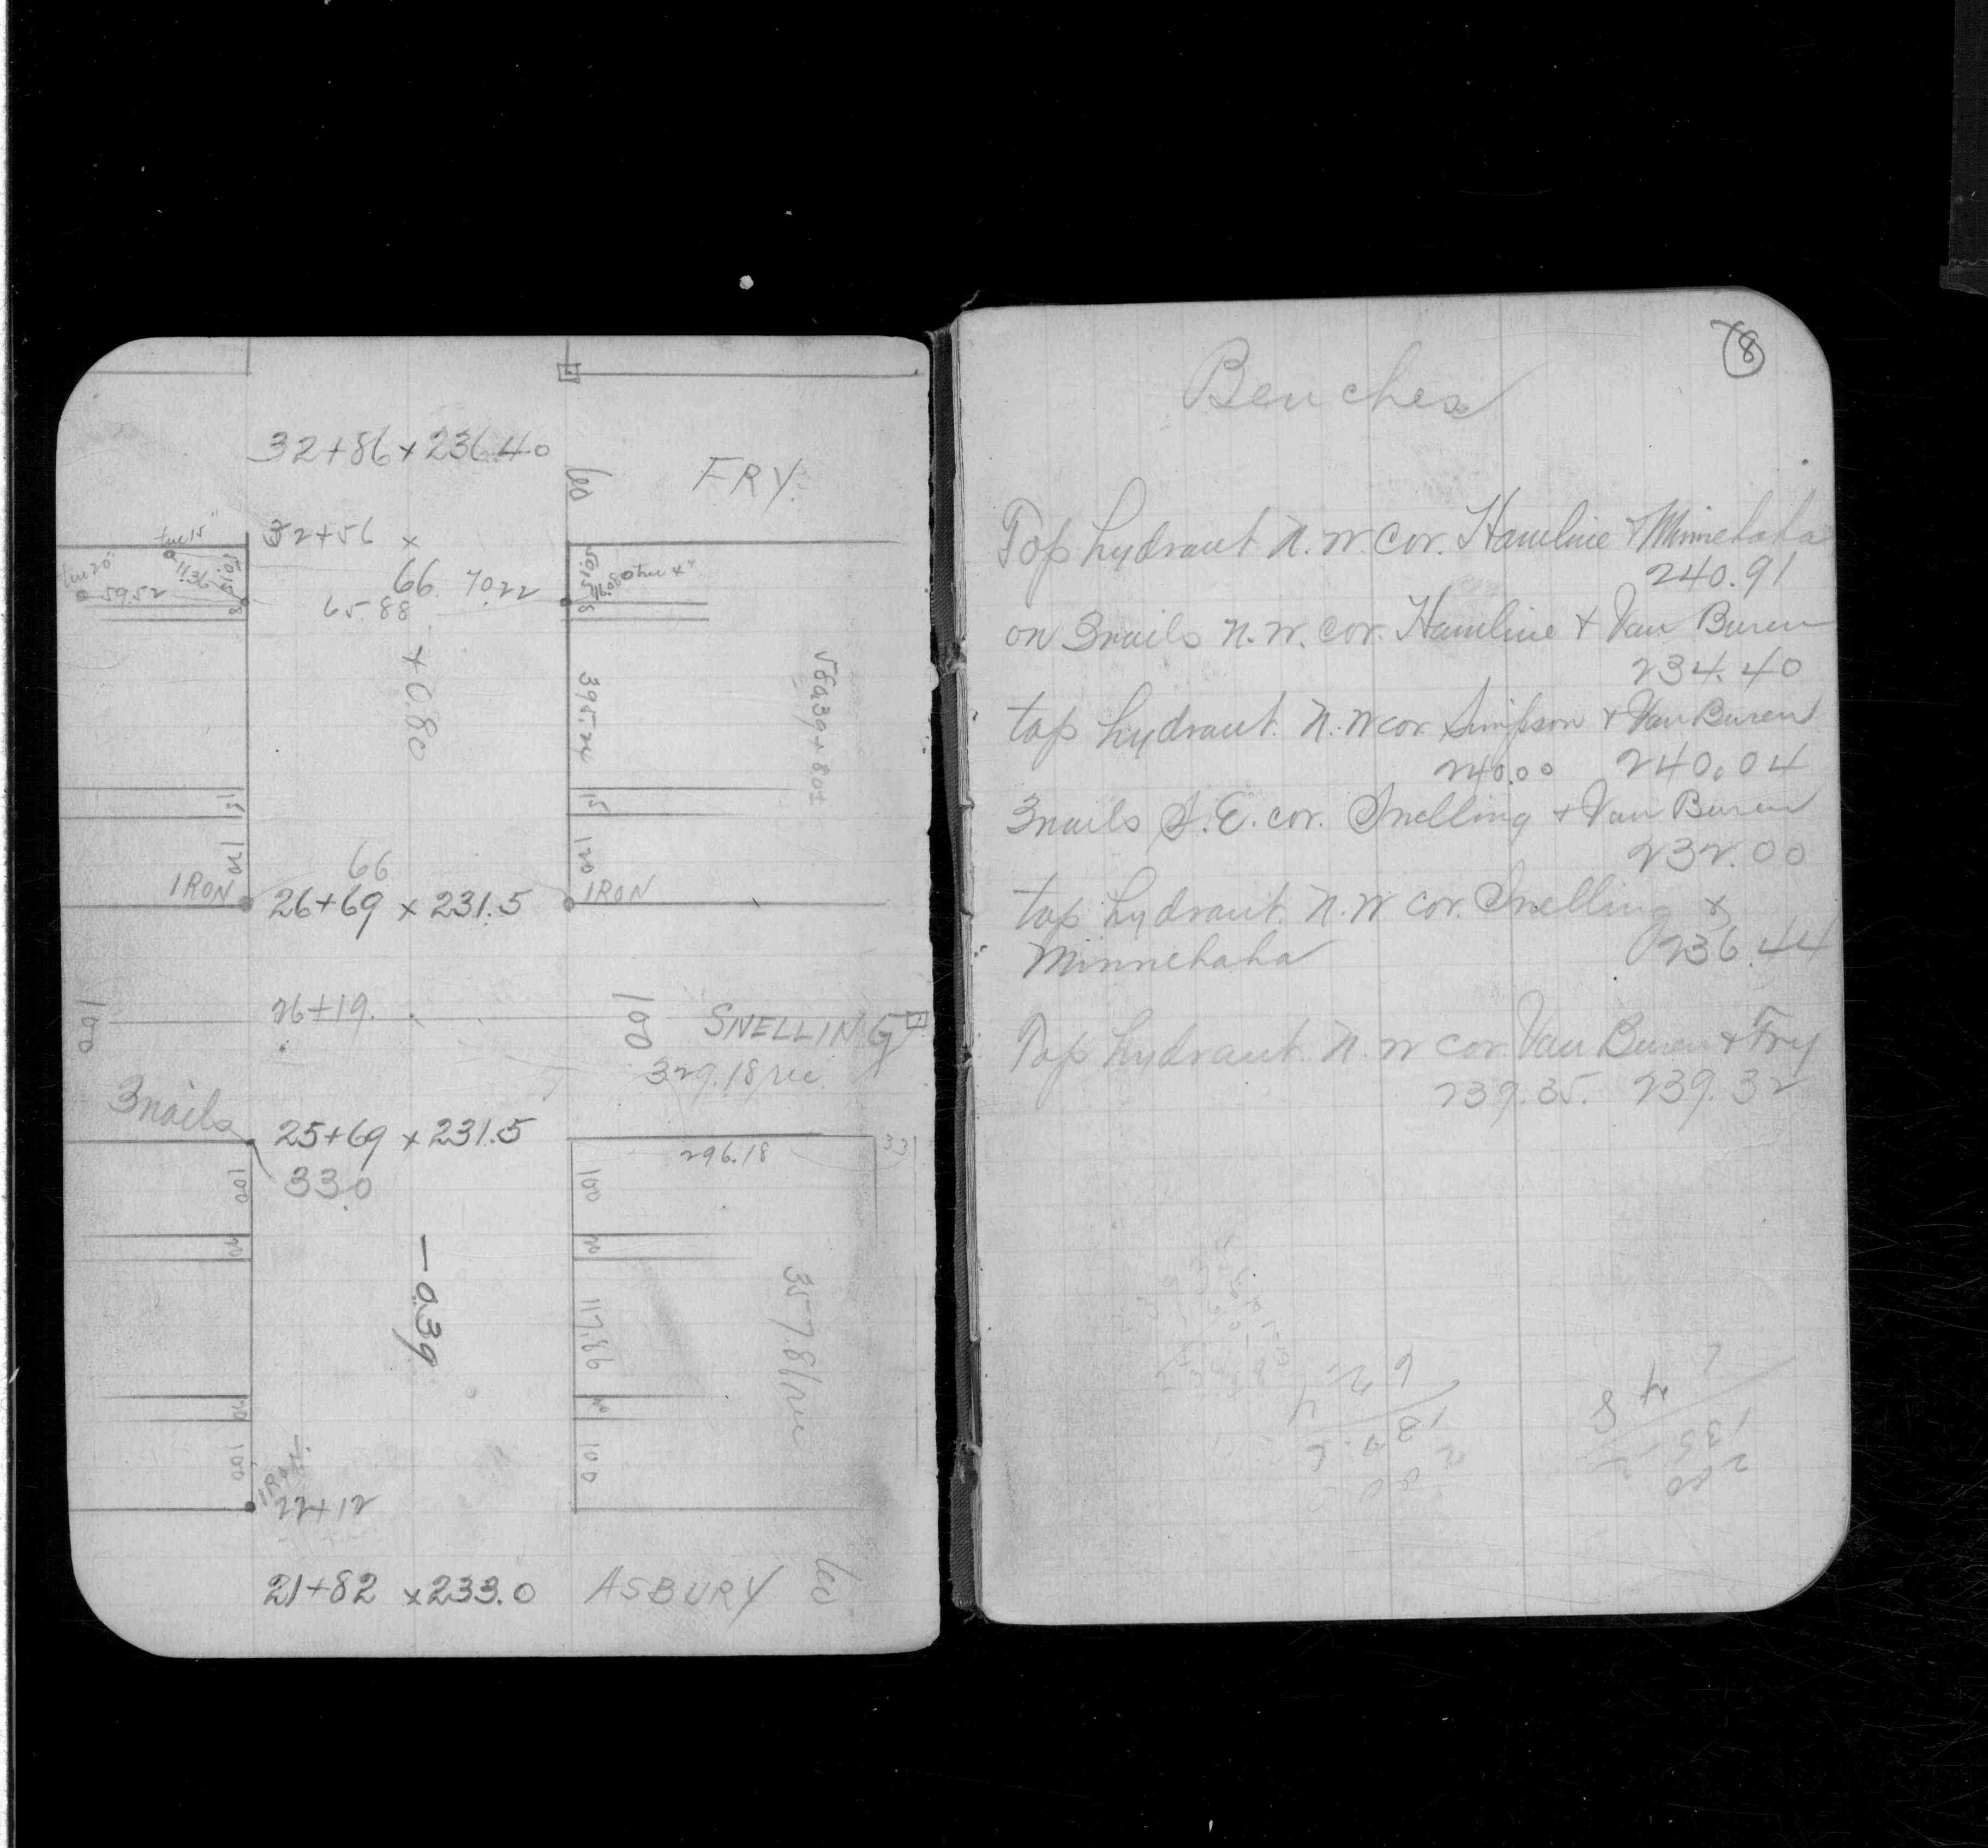 32+86 x 236.40
60
FRY.
tree 15"
32+56 x
tree 20"
11.36
59.52
66
70.22
65.88
tree 4"
+0.80
395.22
15
15
120
120
66
IRON
26+69 x 231.5
IRON
100
26+19.
100
SNELLING
329.18 rec.
3 nails
25+69 x 231.5
296.18
33
330
100
100
20
20
-0.39
117.86
357.81 rec
20
20
100
100
IRON
22+12
21+82 x 233.0
ASBURY
60
8
Benches
Top hydrant N.W. cor. Hamline & Minnehaha
240.91
on 3 nails N.W. cor. Hamline & Van Buren
234.40
top hydrant. N.W cor Simpson & Van Buren
240.00 240.04
3 nails S.E. cor. Snelling & Van Buren
232.00
top hydrant. N.W cor. Snelling &
Minnehaha 236.44
Top hydrant. N.W cor. Van Buren & Fry
239.35. 239.32